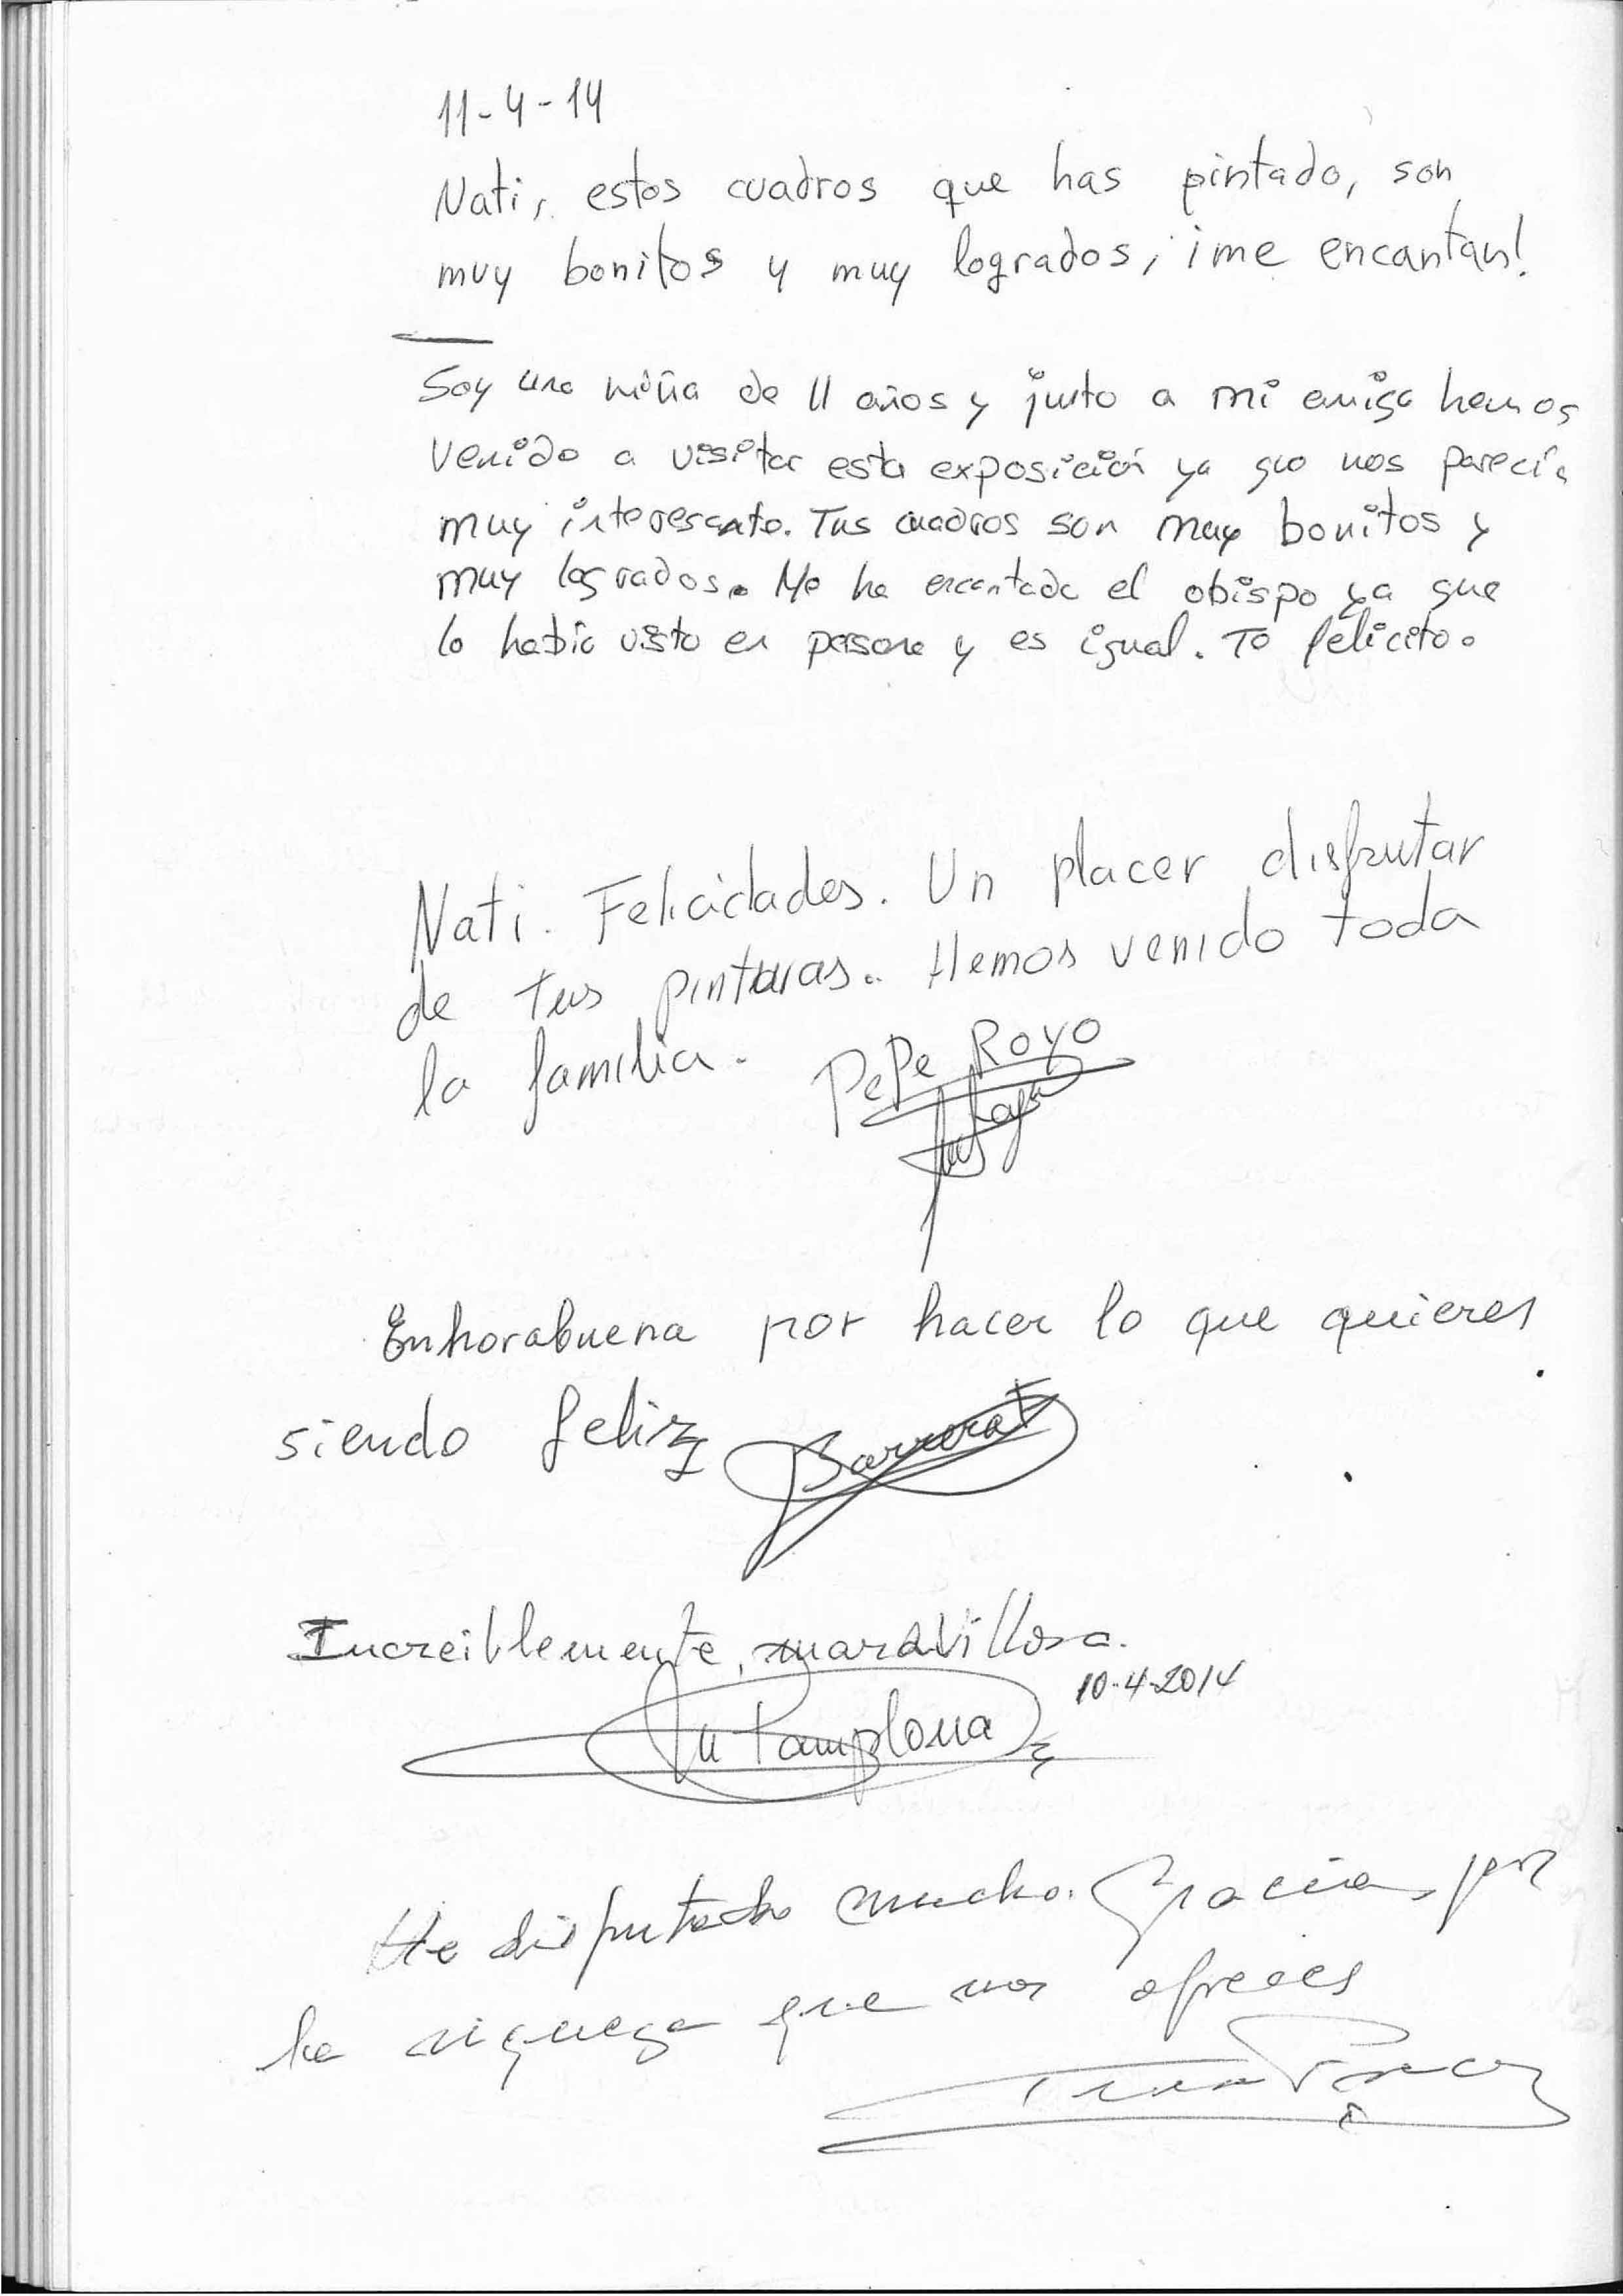 11-4-14
Nati, estos cuadros que has pintado, son
muy bonitos y muy logrados, ¡me encantan!
Soy una niña de 11 años y junto a mi amiga hemos
venido a visitar esta exposición ya que nos parecía
muy interesante. Tus cuadros son muy bonitos y
muy logrados. Me ha encantado el obispo ya que
lo había visto en persona y es igual. Te felicito.
Nati. Felicidades. Un placer disfrutar
de tus pinturas. Hemos venido toda
la familia. PePe Royo
Enhorabuena por hacer lo que quieres
siendo feliz
Increiblemente, maravillosa.
10-4-2014
Pamplona
He disfrutado mucho. Gracias por
la riqueza que nos ofreces